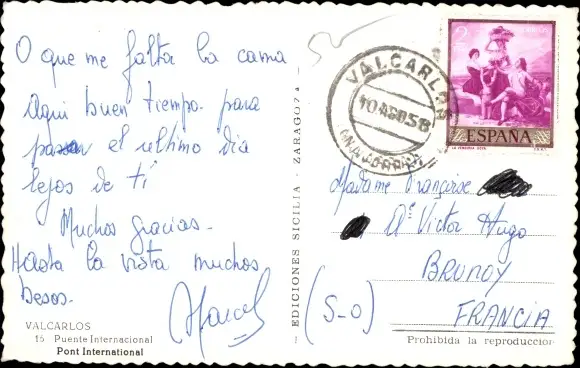 O que me faltar la cama
Aqui buen tiempo. para
pasar el ultimo dia
lejos de ti
Muchos gracias.
Hasta la vista muchos
besos.
Marcel
VALCARLOS
15 Puente Internacional
Pont International
— EDICIONES SICILIA - ZARAGOZA —
VALCARLOS
10 AGO 58
(NAVARRA)
2
CORREOS
ESPAÑA
LA VENDIMIA GOYA
Madame Françoise
Victor Hugo
BRUNOY
(S-O)
FRANCIA
Prohibida la reproduccion